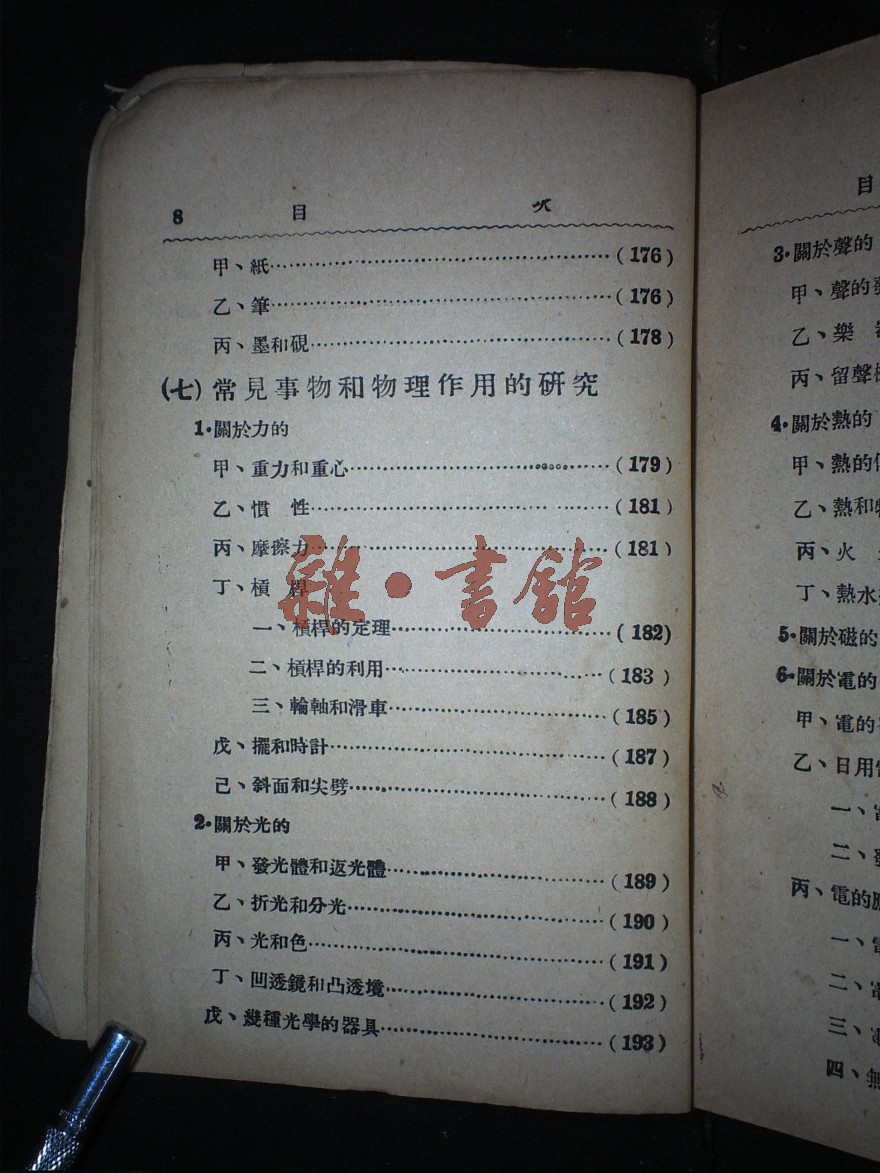 8 目 次
甲、紙……(176)
乙、筆……(176)
丙、墨和硯……(178)
(七)常見事物和物理作用的研究
1·關於力的
甲、重力和重心……(179)
乙、慣 性……(181)
丙、摩擦力……(181)
丁、槓 桿
一、槓桿的定理……(182)
二、槓桿的利用……(183)
三、輪軸和滑車……(185)
戊、擺和時計……(187)
己、斜面和尖劈……(188)
2·關於光的
甲、發光體和返光體……(189)
乙、折光和分光……(190)
丙、光和色……(191)
丁、凹透鏡和凸透境……(192)
戊、幾種光學的器具……(193)
雜·書館
目
3·關於聲的
甲、聲的發
乙、樂
丙、留聲機
4·關於熱的
甲、熱的
乙、熱和物
丙、火
丁、熱水
5·關於磁的
6·關於電的
甲、電的
乙、日用電
一、電
二、發
丙、電的應
一、電
二、電
三、電
四、無